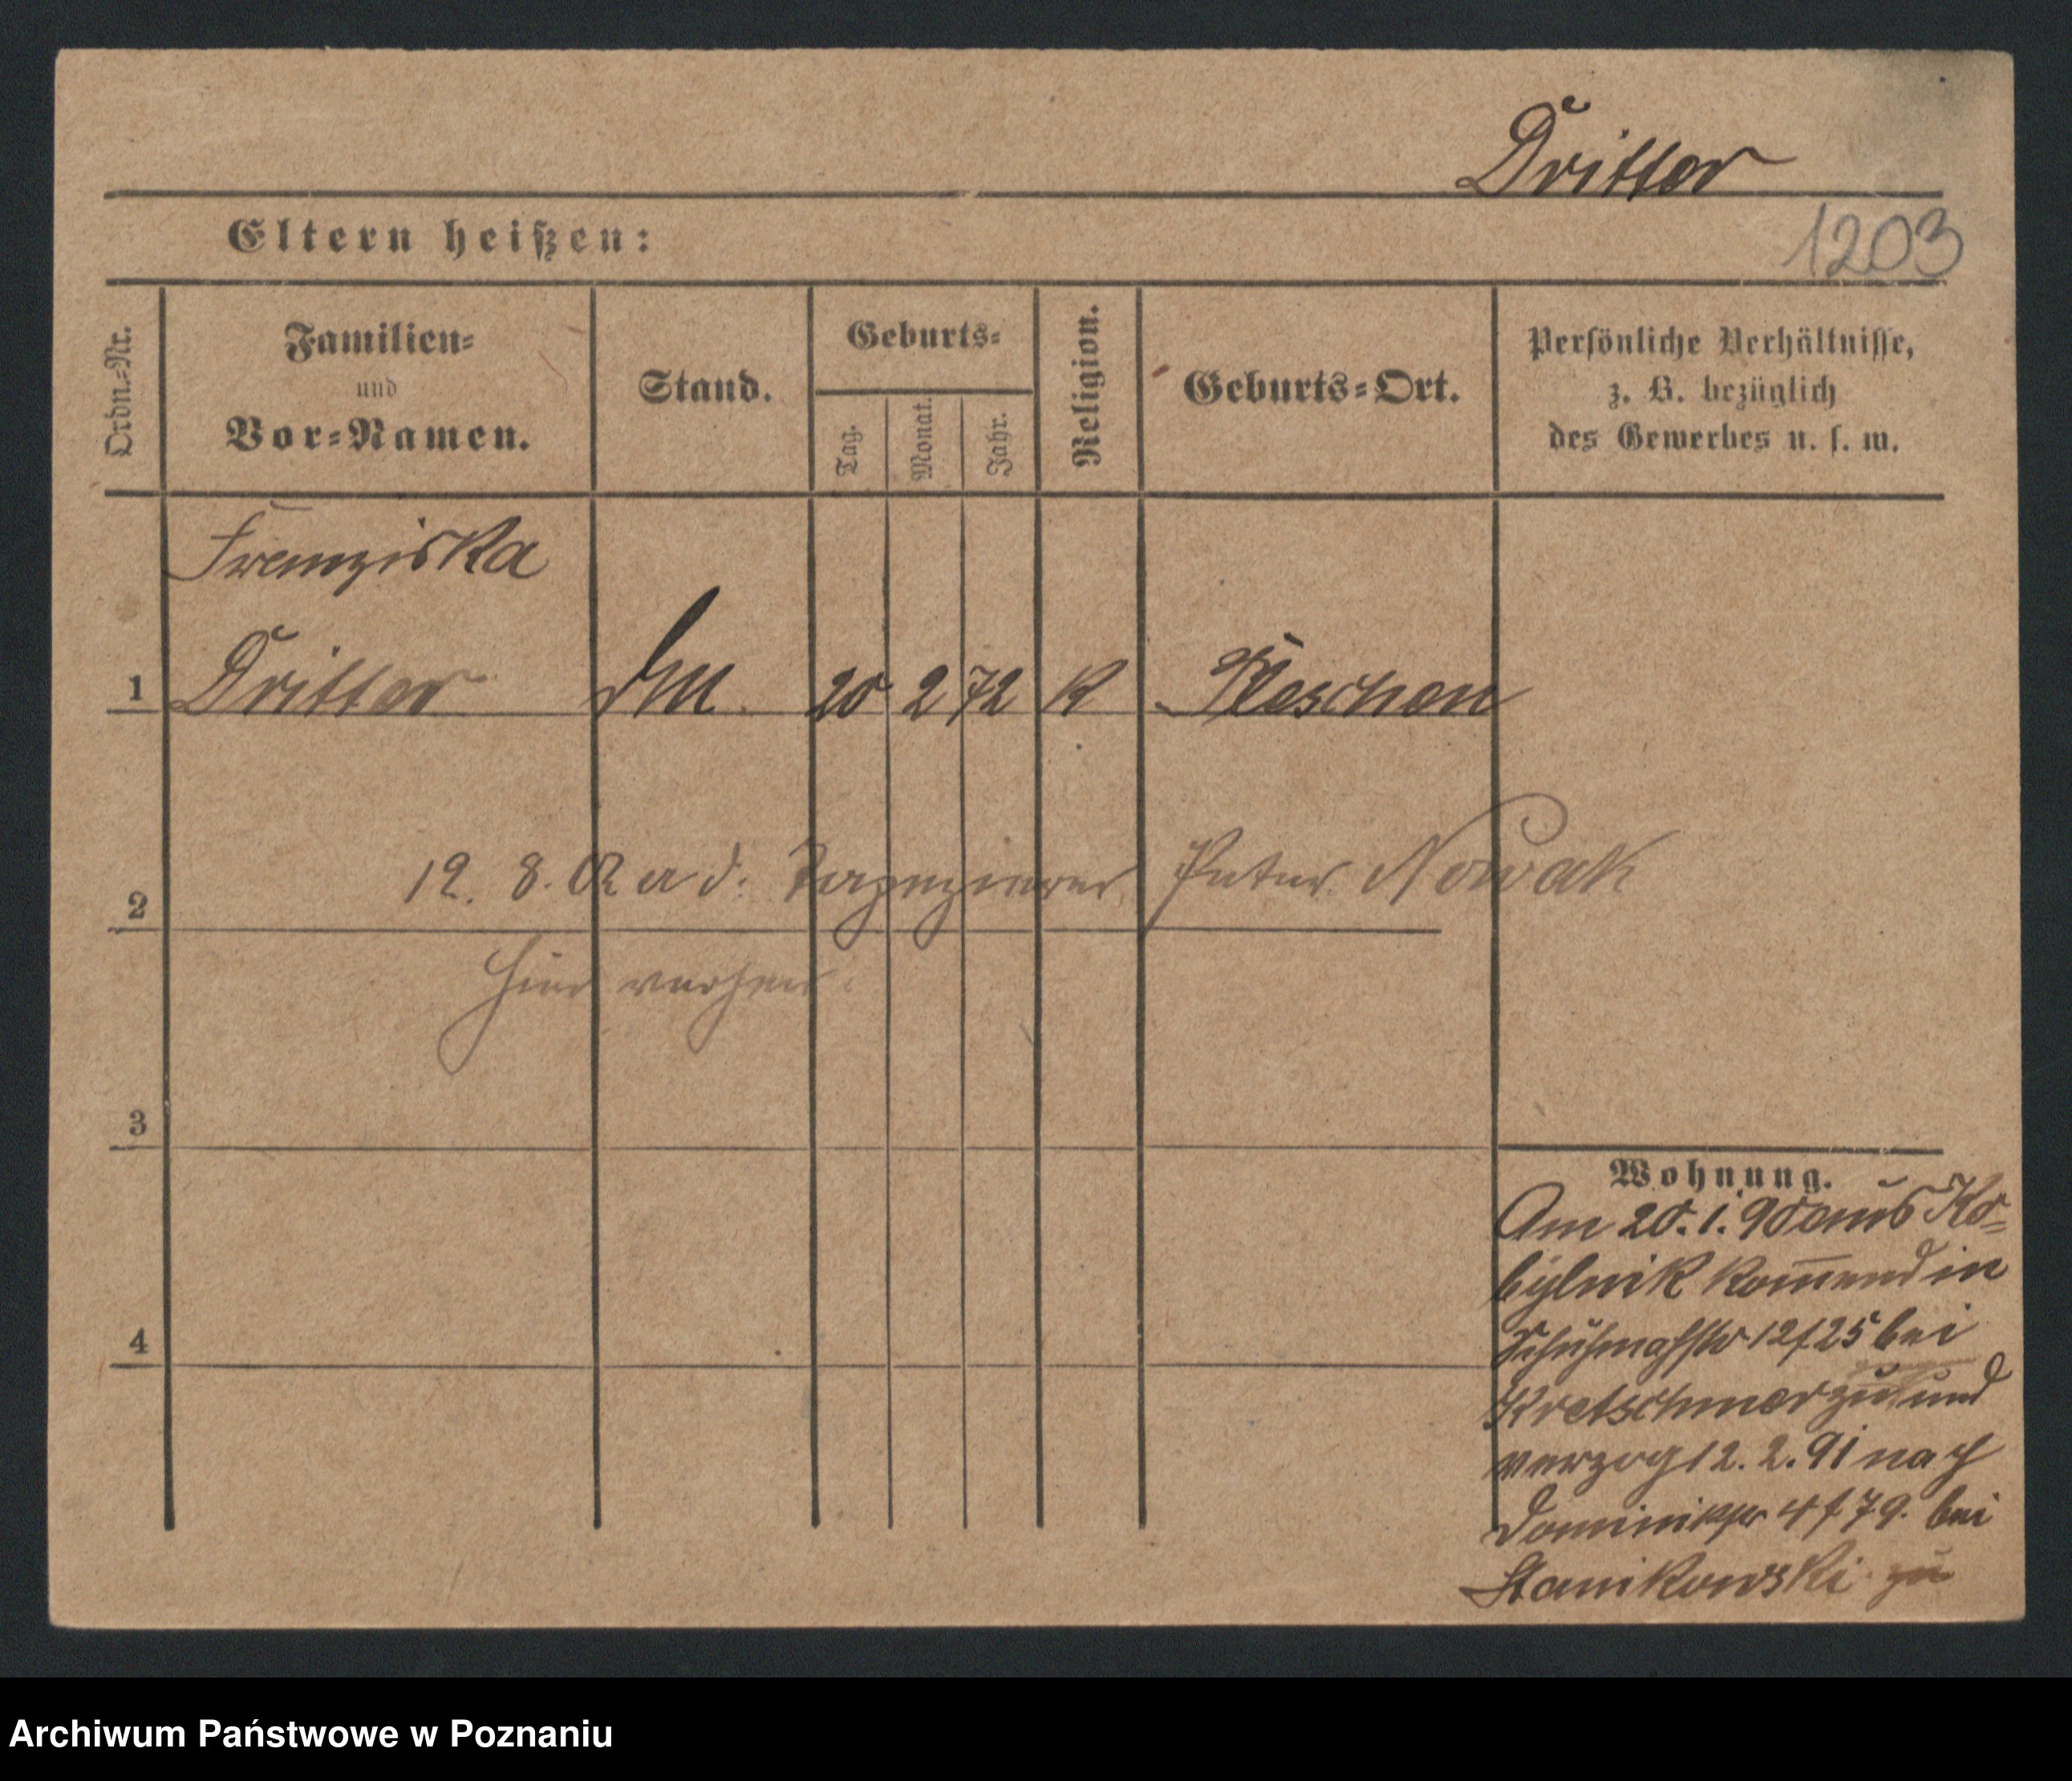 Dritter
Eltern heißen:
1203
Ordn.-Nr.
Familien-
und
Vor-Namen.
Stand.
Geburts-
Tag.
Monat.
Jahr.
Religion.
Geburts-Ort.
Persönliche Verhältnisse,
z. B. bezüglich
des Gewerbes u. s. w.
Franziska
1 Dritter 20 2 72 K Pleschen
2 12. 8. a d. Tapezierer Peter Nowak
hier verh
3
4
Wohnung.
Am 20. 1. 90 aus Ko-
bylnik kommend in
Schuhmachstr 12/25 bei
Kretschmer zu und
verzog 12. 2. 91 nach
Dominikstr 4/79. bei
Stanikowski zu
Archiwum Państwowe w Poznaniu